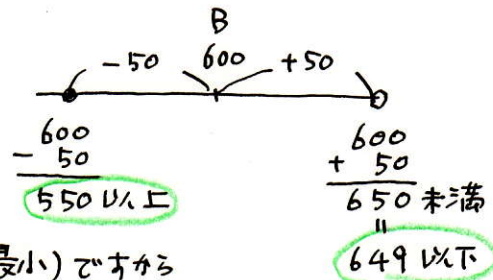 B
-50 600 +50
600
- 50
550以上
600
+ 50
650未満
=
649以下
小)ですから